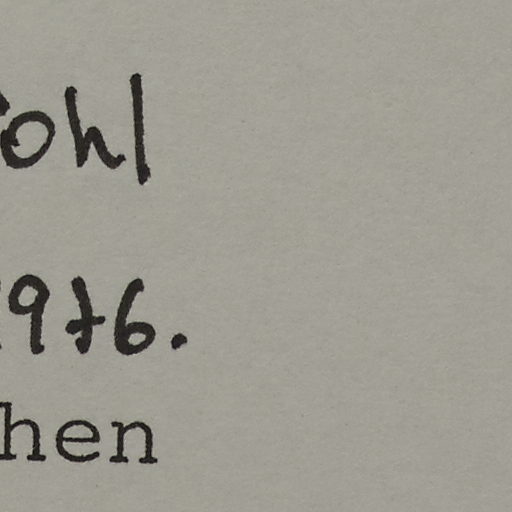 ohl
976.
hen